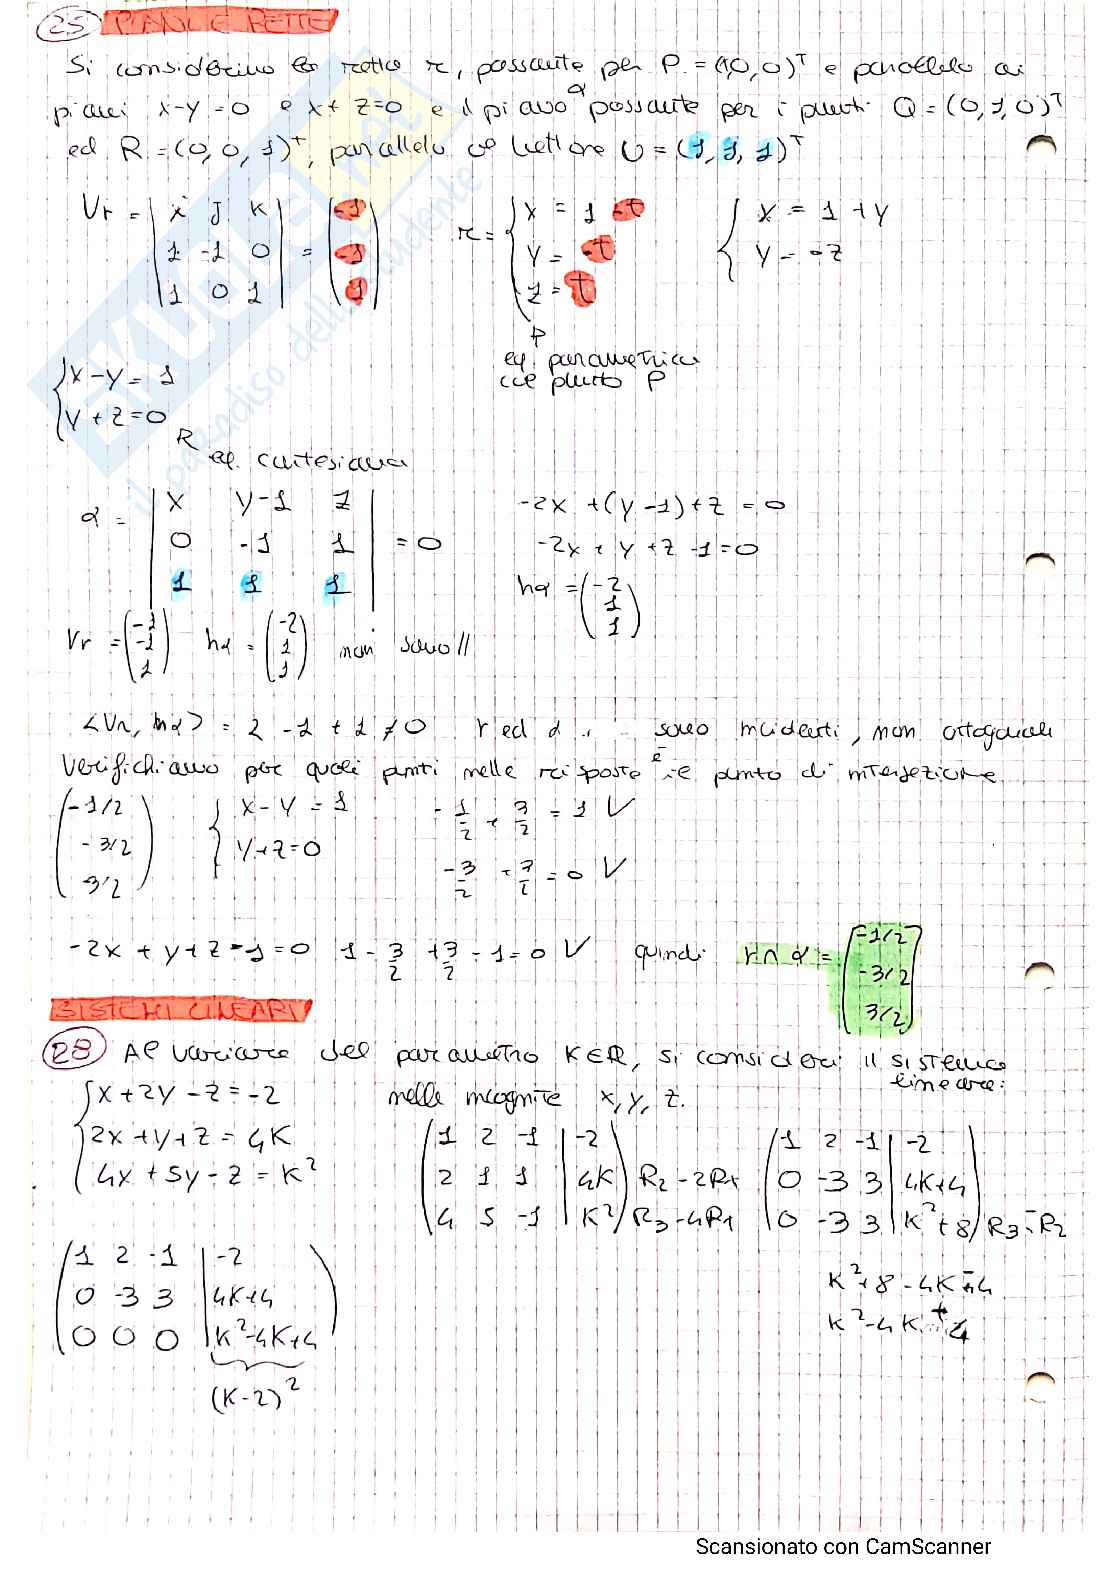 25 PIANI E RETTE
Si considerino la retta r, passante per P = (1,0,0)ᵀ e parallela ai
piani x-y=0 e x+z=0 e il piano α passante per i punti Q=(0,1,0)ᵀ
ed R=(0,0,1)ᵀ, parallelo al vettore U=(1,1,1)ᵀ
Vr = | i J K | = (-1)
| 1 -1 0 | (-1)
| 1 0 1 | (1)
r = { x = 1-t
y = -t
z = t
{ x = 1+y
y = -z
P
eq. parametrica
col punto P
{ x-y = 1
y+z=0
R
eq. cartesiana
α = | x y-1 z |
| 0 -1 1 | = 0
| 1 1 1 |
-2x +(y-1)+z = 0
-2x + y +z -1=0
nα = (-2
1
1)
Vr = (-1 -1 1) nα = (-2 1 1) non sono //
<Vr, nα> = 2 -1 + 1 ≠ 0 r ed α sono incidenti, non ortogonali
Verifichiamo per quali punti nelle risposte è il punto di intersezione
(-1/2
-3/2
3/2)
{ x-y = 1
y+z=0
-1/2 + 3/2 = 1 V
-3/2 + 3/2 = 0 V
-2x + y+z-1=0 1 - 3/2 + 3/2 - 1 = 0 V quindi r∩α = (-1/2
-3/2
3/2)
SISTEMI LINEARI
28 Al variare del parametro K∈R, si consideri il sistema
lineare:
{ x+2y-z=-2 nelle incognite x, y, z.
2x+y+z=4K
4x+5y-z=K²
(1 2 -1 | -2)
(2 1 1 | 4K) R2-2R1
(4 5 -1 | K²) R3-4R1
(1 2 -1 | -2)
(0 -3 3 | 4K+4)
(0 -3 3 | K²+8) R3-R2
(1 2 -1 | -2)
(0 -3 3 | 4K+4)
(0 0 0 | K²-4K+4)
(K-2)²
K²+8-4K-4
K²-4K+4
SKUOLA.net
il paradiso dello studente
Scansionato con CamScanner